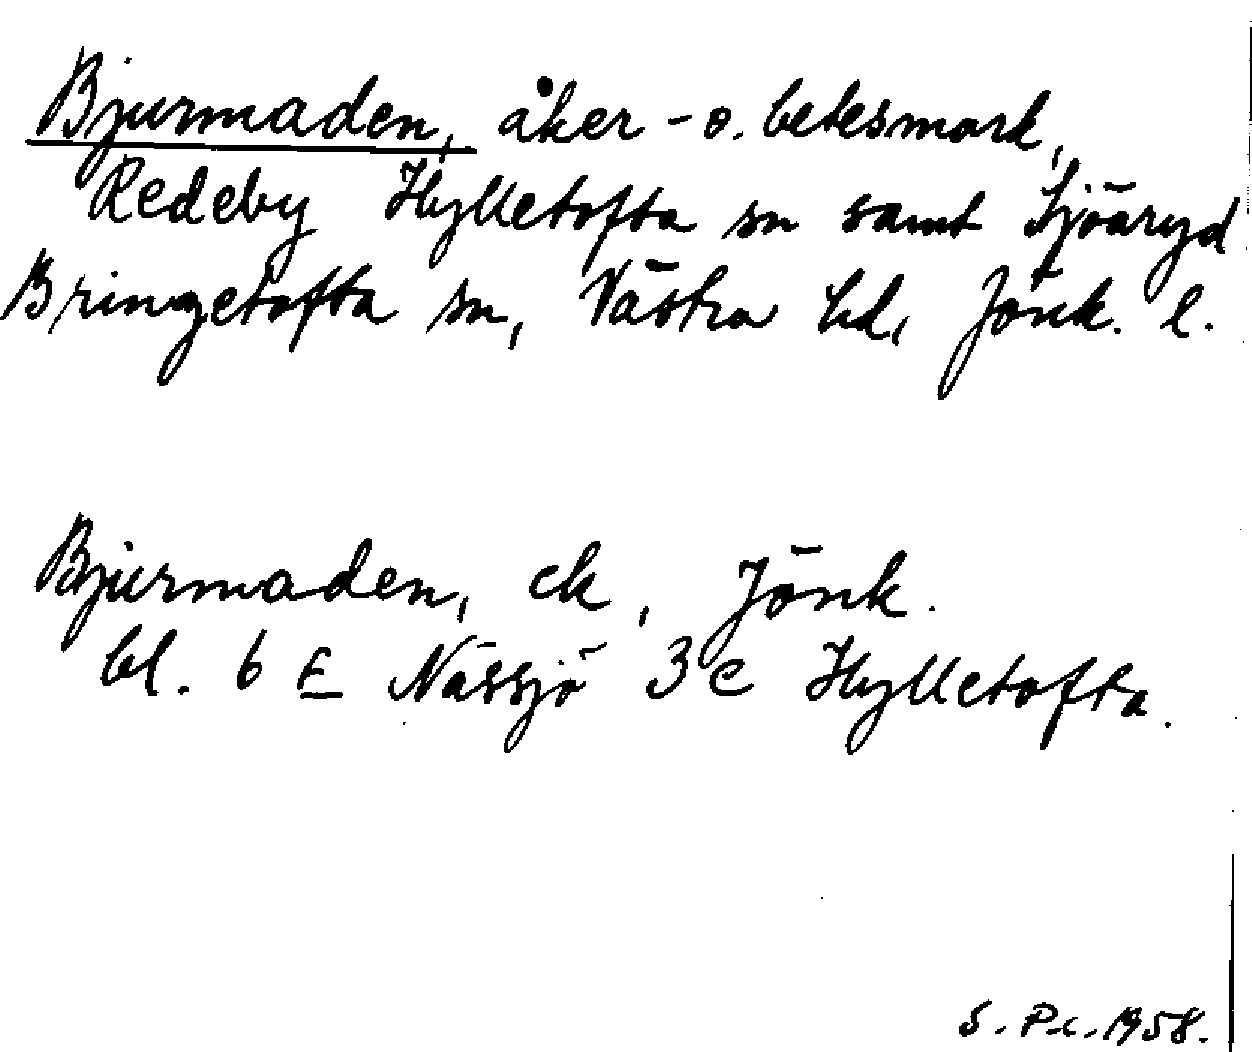 Bjurmaden, åker- o. betesmark,
Redeby Hylletofta sn samt Sjöaryd
Bringetofta sn, Västra hd, Jönk. l.
Bjurmaden, ek, Jönk.
bl. 6 E Nässjö 3 e Hylletofta.
S. P-c. 1958.